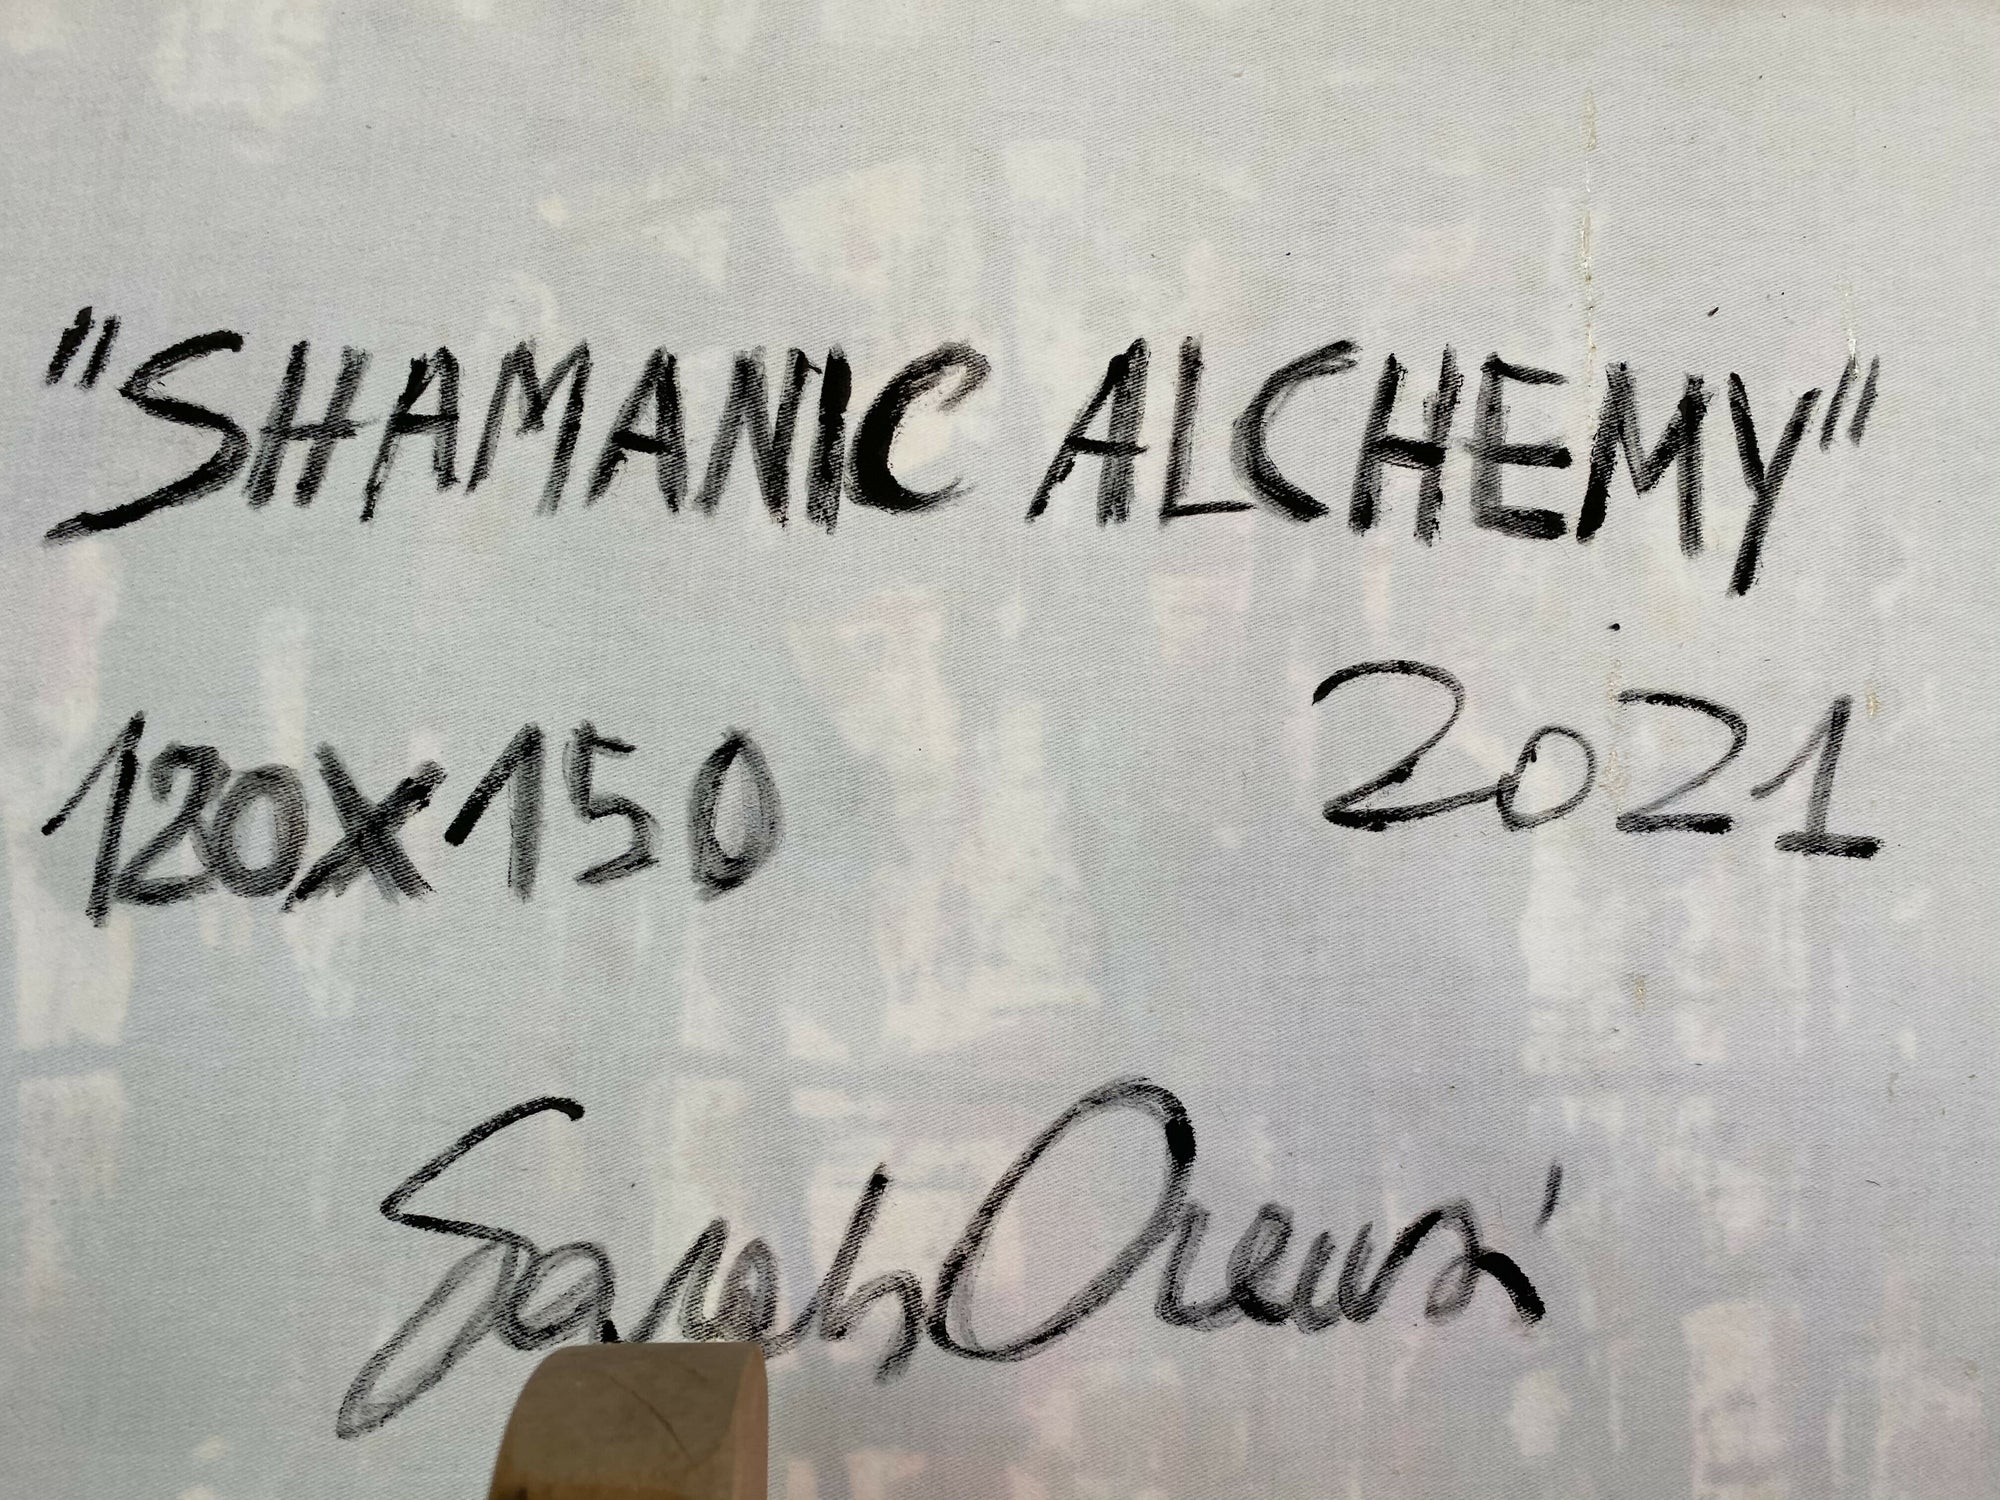 "SHAMANIC ALCHEMY"
120x150 2021
Sarah